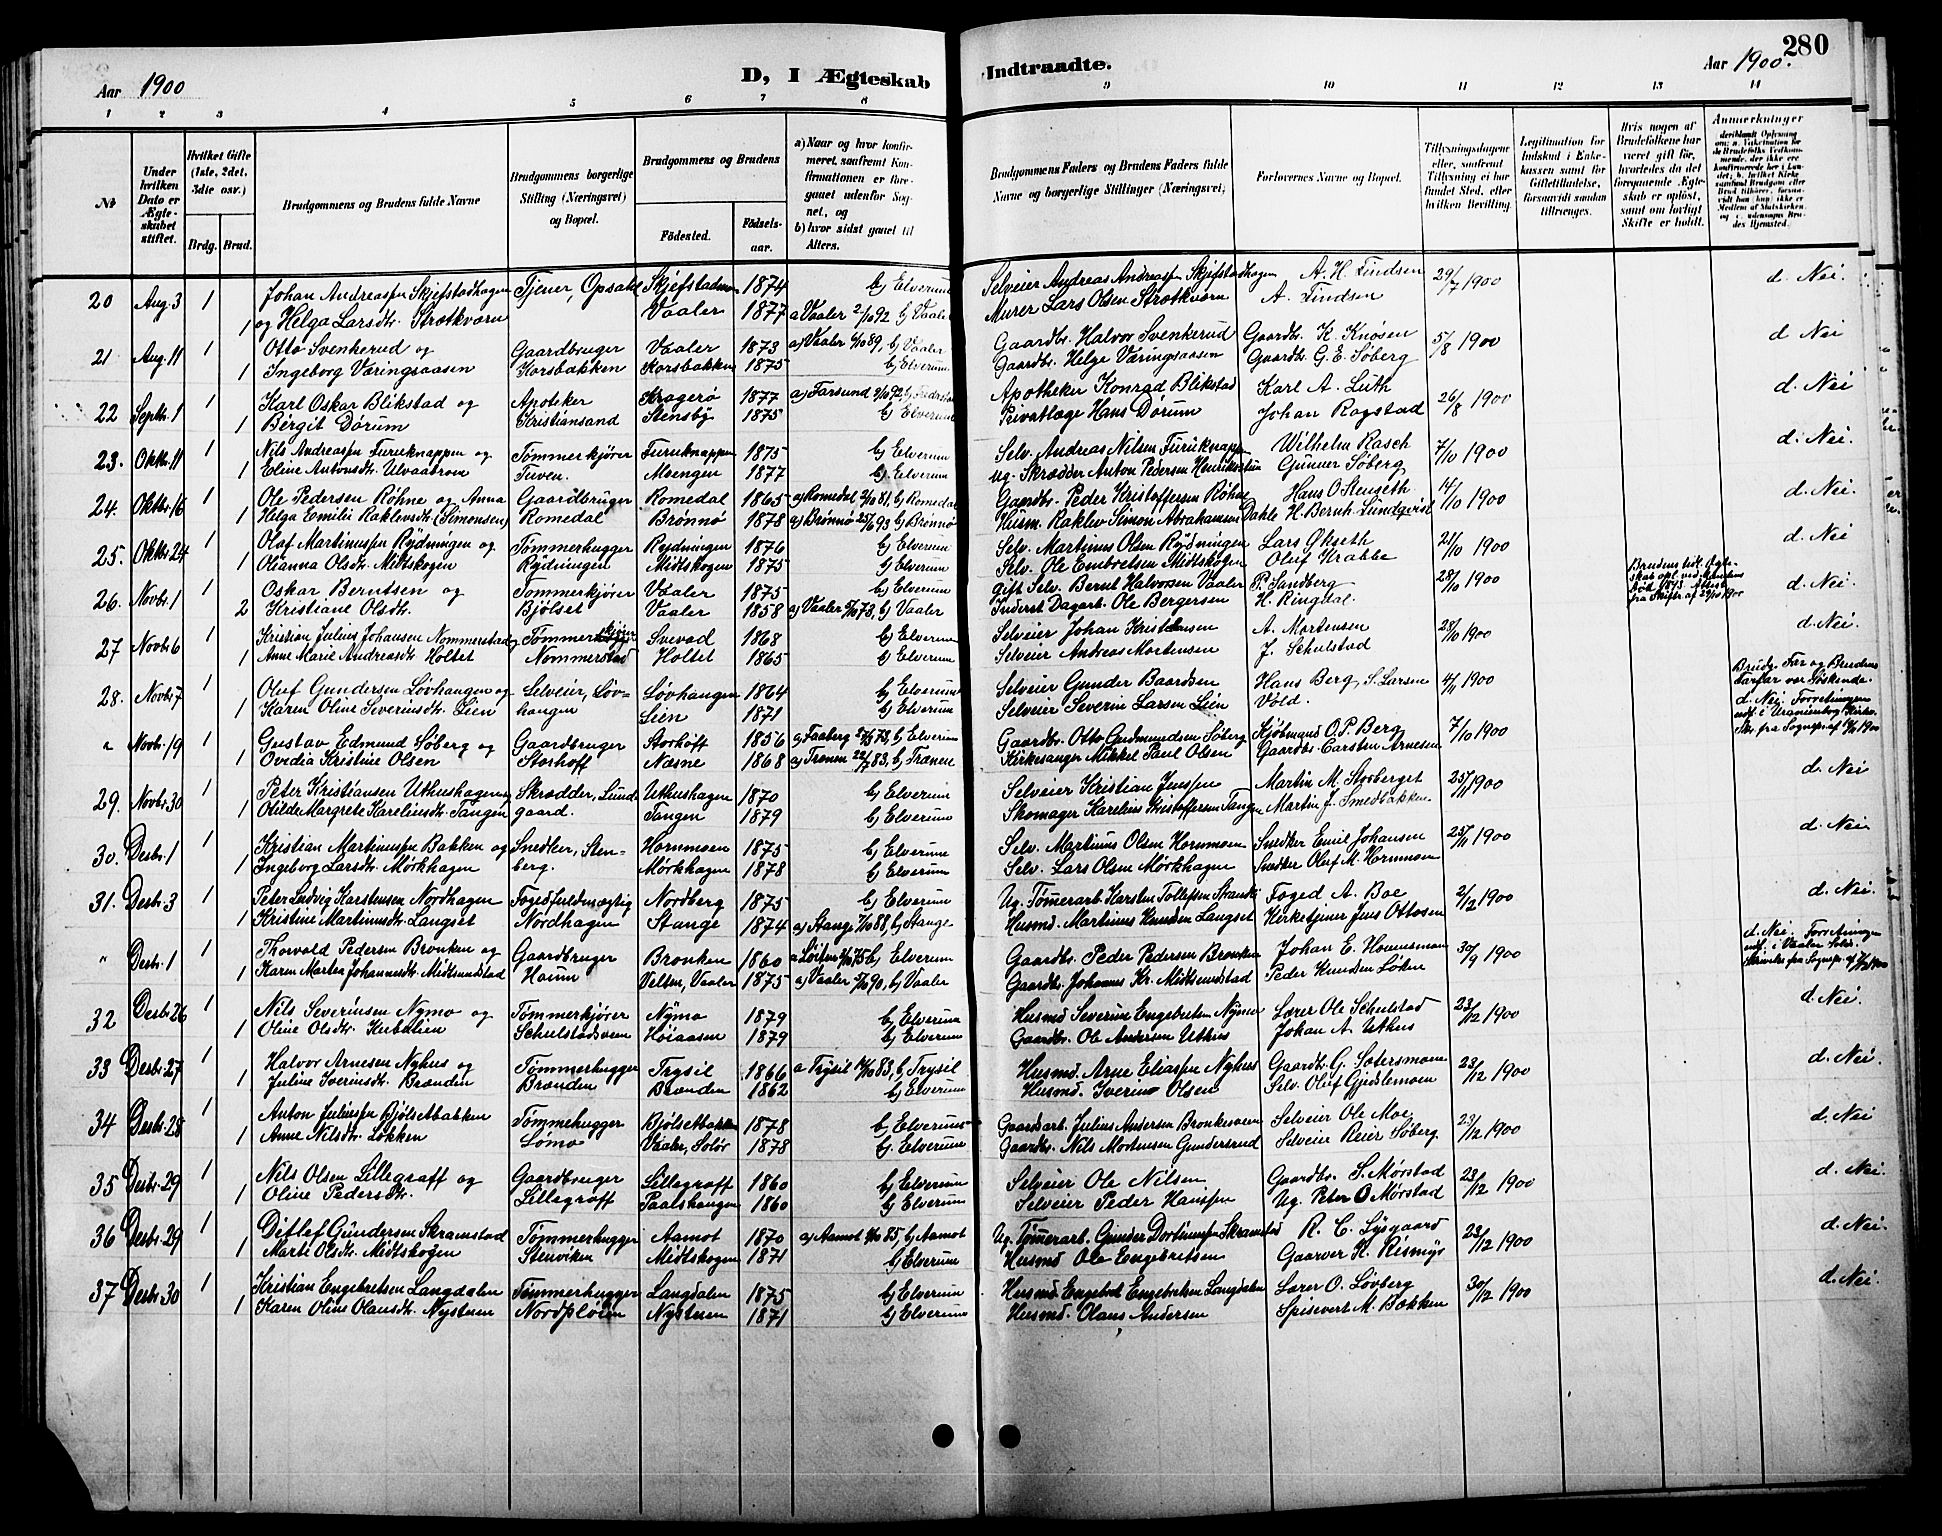 280
Aar 1900
D, I Ægteskab
Indtraadte.
Aar 1900.
1 2 3 4 5 6 7 8 9 10 11 12 13 14
No
Under hvilken Dato er Ægteskabet stiftet.
Hvilket Gifte (1ste, 2det, 3die osv.)
Brdg. Brud.
Brudgommens og Brudens fulde Navne
Brudgommens borgerlige Stilling (Næringsvei) og Bopæl.
Brudgommens og Brudens
Fødested.
Fødselsaar.
a) Naar og hvor konfirmeret, saafremt Konfirmationen er foregaaet udenfor Sognet, og
b) hvor sidst gaaet til Alters.
Brudgommens Faders og Brudens Faders fulde Navne og borgerlige Stillinger (Næringsvei)
Forlovernes Navne og Bopæl.
Tillysningsdagene eller, saafremt Tillysning ei har fundet Sted, efter hvilken Bevilling.
Legitimation for Indskud i Enkekassen samt for Giftetilladelse, forsaavidt saadan tiltrænges.
Hvis nogen af Brudefolkene har været gift før, hvorledes da det foregaaende Ægteskab er opløst, samt om lovligt Skifte er holdt.
Anmærkninger
20 Aug 3 1 Johan Andreassen Skjefstadhagen Tjener, Opsahl Skjefstadmoen 1874 b) Elverum Selveier Andreas Andreassen Skjefstadhagen A. H. Findsen 29/7 1900 d. Nei.
1 og Helga Larsdtr. Strætkværn Vaaler 1877 a Vaaler 2/10 92 b) Vaaler Murer Lars Olsen Strætkværn A. Findsen
21 Aug 11 1 Otto Svenkerud og Gaardbruger Vaaler 1873 a) Vaaler 6/10 89, b) Vaaler Gaardb. Halvor Svenkerud Gaardb. K. Knosen 5/8 1900 d. Nei
1 Ingeborg Væringsaasen Korsbakken Korsbakken 1875 b) Elverum Gaardb. Helge Væringsaasen Gaardb. G. E. Søberg
22 Septbr. 1 1 Karl Oskar Blikstad og Apoteker Kragerø 1877 a) Farsund 2/10 92 Apotheker Konrad Blikstad Karl A. Luth 26/8 1900 d. Nei
1 Bergit Dørum Kristiansand Stensby 1875 b) Elverum Privatlæge Hans Dørum Johan Rogstad
23. Oktbr. 11 1 Nils Andreassen Furuknappen og Tømmerkjører Furuknappen 1875 b) Elverum Selv. Andreas Nilsen Furuknappen Wilhelm Rasch 7/10 1900 d. Nei.
1 Eline Antonsdtr. Ulvaabroen Tuven Moengen 1877 b) Elverum ug. Skrædder Anton Pedersen Gunner Søberg
24. Oktbr. 16 1 Ole Pedersen Røhne og Anna Gaardbruger Romedal 1865 a) Romedal 2/10 81, b) Romedal Gaardb. Peder Kristoffersen Røhne Hans O Stenseth 14/10 1900 d. Nei.
1 Helga Emilie Raklevsdtr. (Simonsen) Romedal Brønnø 1878 a) Brønnø 25/6 93 b) Brønnø Husm. Raklev Simon Abrahamsen Dahle H. Bernh. Lundqvist
25. Oktbr. 24 1 Olaf Martinussen Rydningen og Tømmerhugger Rydningen 1876 b) Elverum Selv. Martinus Olsen Rydningen Lars Grseth 21/10 1900 d. Nei
1 Oleanna Olsdtr. Midtskogen Rydningen Midtskogen 1875 b) Elverum Selv. Ole Embretsen Midtskogen Oluf Krabbe
26. Novbr. 1 1 Oskar Berntsen og Tømmerkjører Vaaler 1875 b) Elverum gift Selv. Bernt Halvorsen Vaaler P. Sandberg 28/10 1900 d. Nei
2 Kristiane Olsdtr. Bjølset Vaaler 1858 a) Vaaler 5/10 73, b) Vaaler Inderst Dagarb. Ole Bergersen H. Ringdal.
27 Novbr. 6 1 Kristian Julius Johansen Nommerstad og Tømmerkjører Svevad 1868 b) Elverum Selveier Johan Kristiansen A. Mortensen 28/10 1900 d. Nei.
1 Anne Marie Andreasdtr. Holtet Nommerstad Holtet 1865 b) Elverum Selveier Andreas Mortensen J. Schulstad
28. Novbr. 7 1 Oluf Gundersen Løvhaugen og Selveier, Løvhaugen Løvhaugen 1864 b) Elverum Selveier Gunder Baardsen Hans Berg, S. Larsen 4/11 1900 Brudg. Far og Brudens Farfar var Søskende.
1 Karen Oline Severinsdtr. Lien Lien 1871 b) Elverum Selveier Severin Larsen Lien Vold.
" Novbr. 19 1 Gustav Edmund Søberg og Gaardbruger Storhoff 1856 a) Faaberg 73, b) Elverum Gaardbr. Otto Gudmundsen Søberg Kjøbmand O. P. Berg 7/10 1900 d. Nei. Forretningen udf. i Uranienborg Kirke.
1 Ovedia Kristine Olsen Storhoff Næsne 1868 a) Trænen 22/7 83, b) Trænen Kirkesanger Mikkel Paul Olsen Gaardbr. Carsten Arnesen
29. Novbr. 30 1 Peter Kristiansen Uthushagen og Skrædder, Lundgaard. Uthushagen 1870 b) Elverum Selveier Kristian Jenssen Martin M. Storberget 25/11 1900 d. Nei
1 Otilde Margrete Kareliusdtr. Tangen Tangen 1879 b) Elverum Skomager Karelius Kristoffersen Tangen Martin J. Smedbakken.
30. Desbr. 1 1 Kristian Martinussen Bakken og Snedker, Stenberg. Hornmoen 1875 b) Elverum Selv. Martinus Olsen Hornmoen Snedker Emil Johansen 25/11 1900 d. Nei
1 Ingeborg Larsdtr. Mørkhagen Mørkhagen 1878 b) Elverum Selv. Lars Olsen Mørkhagen Snedker Oluf M. Hornmoen
31. Desbr. 3 1 Peter Ludvig Karstensen Nordhagen Fogedfuldmægtig Nordberg 1875 b) Elverum Ug. Tømerarb. Karsten Tollefsen Strande Foged A. Boe 2/12 1900 d. Nei.
1 Kristine Martinusdtr. Langset Nordhagen Stange 1874 a) Stange 7/10 88, b) Stange Husmd. Martinus Knudsen Langset Kirketjener Jens Ottosen
" Desbr. 1 1 Thorvald Pedersen Bronken og Gaardbruger Bronken 1860 a Løiten 75 b, Elverum Gaardbr. Peder Pedersen Bronken Johan E. Hommsmoen 30/9 1900 d. Nei. Forretningen udf. i Vaaler Solør.
1 Karen Martea Johannesdtr. Midtsundstad Haum Velten, Vaaler 1875 a) Vaaler 5/10 90, b) Vaaler Gaardbr. Johannes Kr. Midtsundstad Peder Knudsen Løken
32 Desbr. 26 1 Nils Severinsen Nymo og Tømmerkjører Nymo 1879 b) Elverum Husmd Severin Engebretsen Nymo Lærer Ole Schulstad 23/12 1900 d. Nei.
1 Oline Olsdtr. Kirbælien Schulstadsveen Høiaasen 1879 b) Elverum Gaardbr. Ole Andersen Uthus Johan A. Uthus
33 Desbr. 27 1 Halvor Arnesen Nyhus og Tømmerhugger Trysil 1866 a Trysil 14/10 83, b) Trysil Husmd. Arne Eliassen Nyhus Gaardb. G. Sætersmoen 23/12 1900 d. Nei.
1 Juline Iverinsdtr. Brænden Brænden Brænden 1862 b) Elverum Husmd. Iverin Olsen Selv. Oluf Gjidlemoen
34 Desbr. 28 1 Anton Juliussen Bjølsetbakken Tømmehugger Bjølsetbakken 1878 b) Elverum Gaardarb. Julius Andersen Bronkesveen Selveier Ole Moe 23/12 1900 d. Nei
1 Anne Nilsdtr. Løkken Lømo Vaaler, Solør 1878 b). Elverum Gaardbr. Nils Mortensen Gundersrud Selveier Reier Søberg
35 Desbr. 29 1 Nils Olsen Lillegraff og Gaardbruger Lillegraff 1860 b) Elverum Selveier Ole Nilsen Gaardbr. S. Mørstad 23/12 1900 d. Nei
1 Oline Pedersdtr. Lillegraff Paalshaugen 1860 b) Elverum Selveier Peder Hanssen Ug. Peter O Mørstad
36 Desbr. 29 1 Ditlef Gundersen Skramstad Tømmerhugger Aamot 1870 a) Aamot 4/10 85, b) Aamot Ug. Tømerarb. Gunder Dortinussen Skramstad R. C. Lysgaard 23/12 1900 d. Nei.
1 Marte Olsdtr. Midtskogen Stenviken Midtskogen 1871 b) Elverum Husmd Ole Engebretsen Gaarver K. Rismyr
37 Desbr. 30 1 Kristian Engebretsen Langdalen Tømmerhugger Langdalen 1875 b) Elverum Husmd Engebret Engebretsen Langdalen Lærer O. Løvberg 30/12 1900 d. Nei.
1 Karen Oline Olausdtr. Nystuen Nordpløien Nystuen 1871 b) Elverum Husmd. Olaus Andersen Spisevert M. Bakken